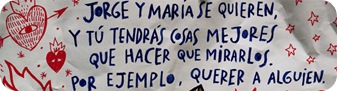 JORGE Y MARÍA SE QUIEREN,
Y TÚ TENDRÁS COSAS MEJORES
QUE HACER QUE MIRARLOS.
POR EJEMPLO, QUERER A ALGUIEN.